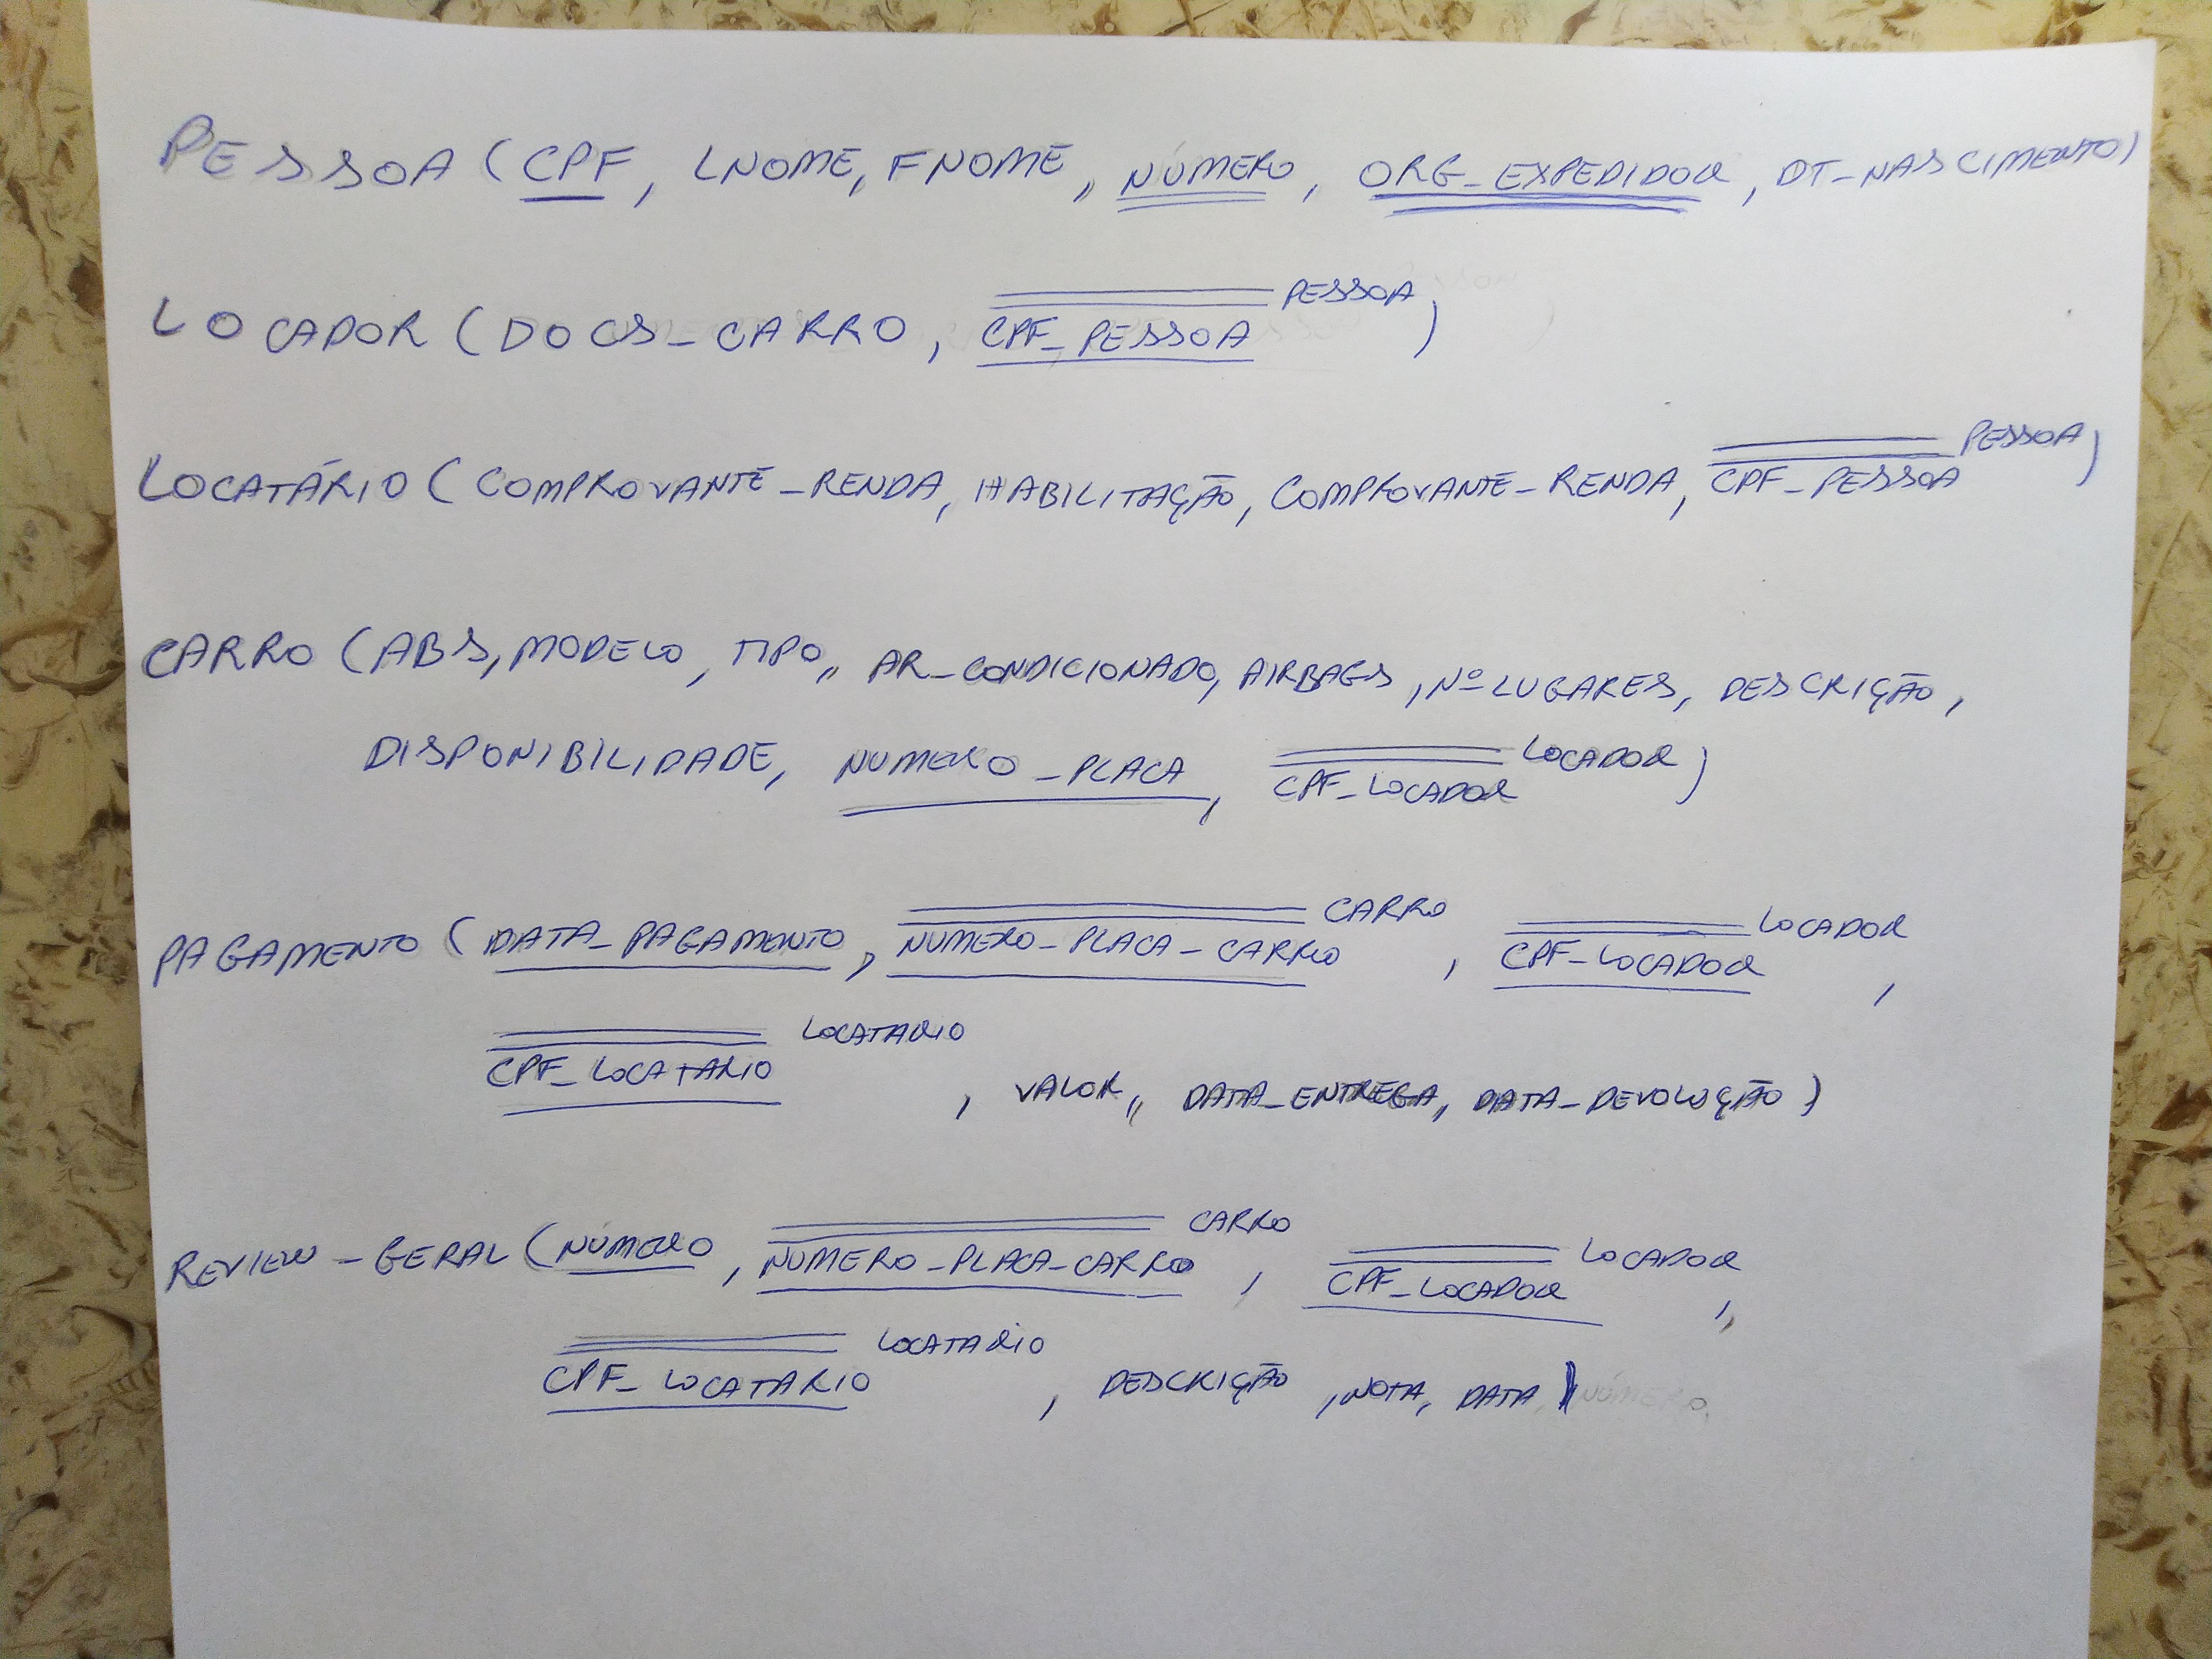 PESSOA (CPF, LNOME, FNOME, NÚMERO, ORG_EXPEDIDOR, DT_NASCIMENTO)
PESSOA
LOCADOR (DOCS_CARRO, CPF_PESSOA)
PESSOA
LOCATÁRIO (COMPROVANTE_RENDA, HABILITAÇÃO, COMPROVANTE_RENDA, CPF_PESSOA)
CARRO (ABS, MODELO, TIPO, AR_CONDICIONADO, AIRBAGS, Nº LUGARES, DESCRIÇÃO,
LOCADOR
DISPONIBILIDADE, NUMERO_PLACA, CPF_LOCADOR)
CARRO LOCADOR
PAGAMENTO (DATA_PAGAMENTO, NUMERO_PLACA_CARRO, CPF_LOCADOR,
LOCATARIO
CPF_LOCATARIO, VALOR, DATA_ENTREGA, DATA_DEVOLUÇÃO)
CARRO LOCADOR
REVIEW_GERAL (NÚMERO, NUMERO_PLACA_CARRO, CPF_LOCADOR,
LOCATARIO
CPF_LOCATARIO, DESCRIÇÃO, NOTA, DATA) NÚMERO